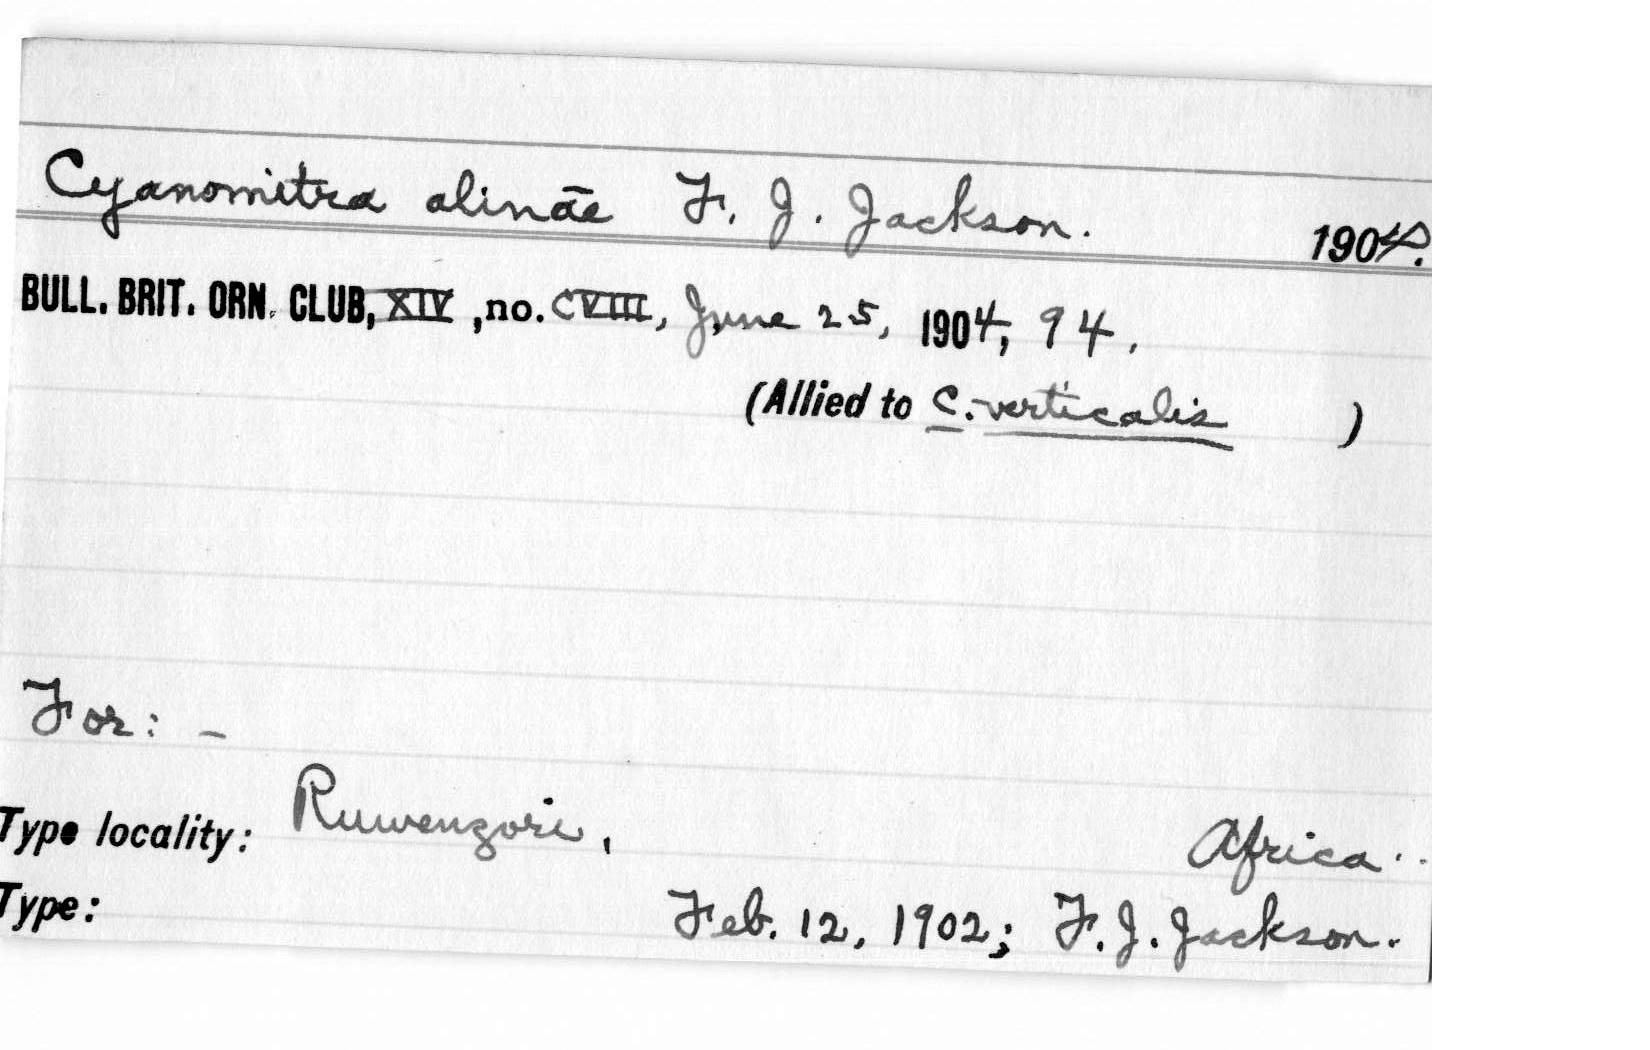 Cyanomitra alinae F. J. Jackson. 1904.
BULL. BRIT. ORN. CLUB, XIV, no. CVIII, June 25, 1904, 94.
(Allied to C. verticalis )
For: –
Type locality: Ruwenzori, Africa..
Type: Feb. 12, 1902; F. J. Jackson.